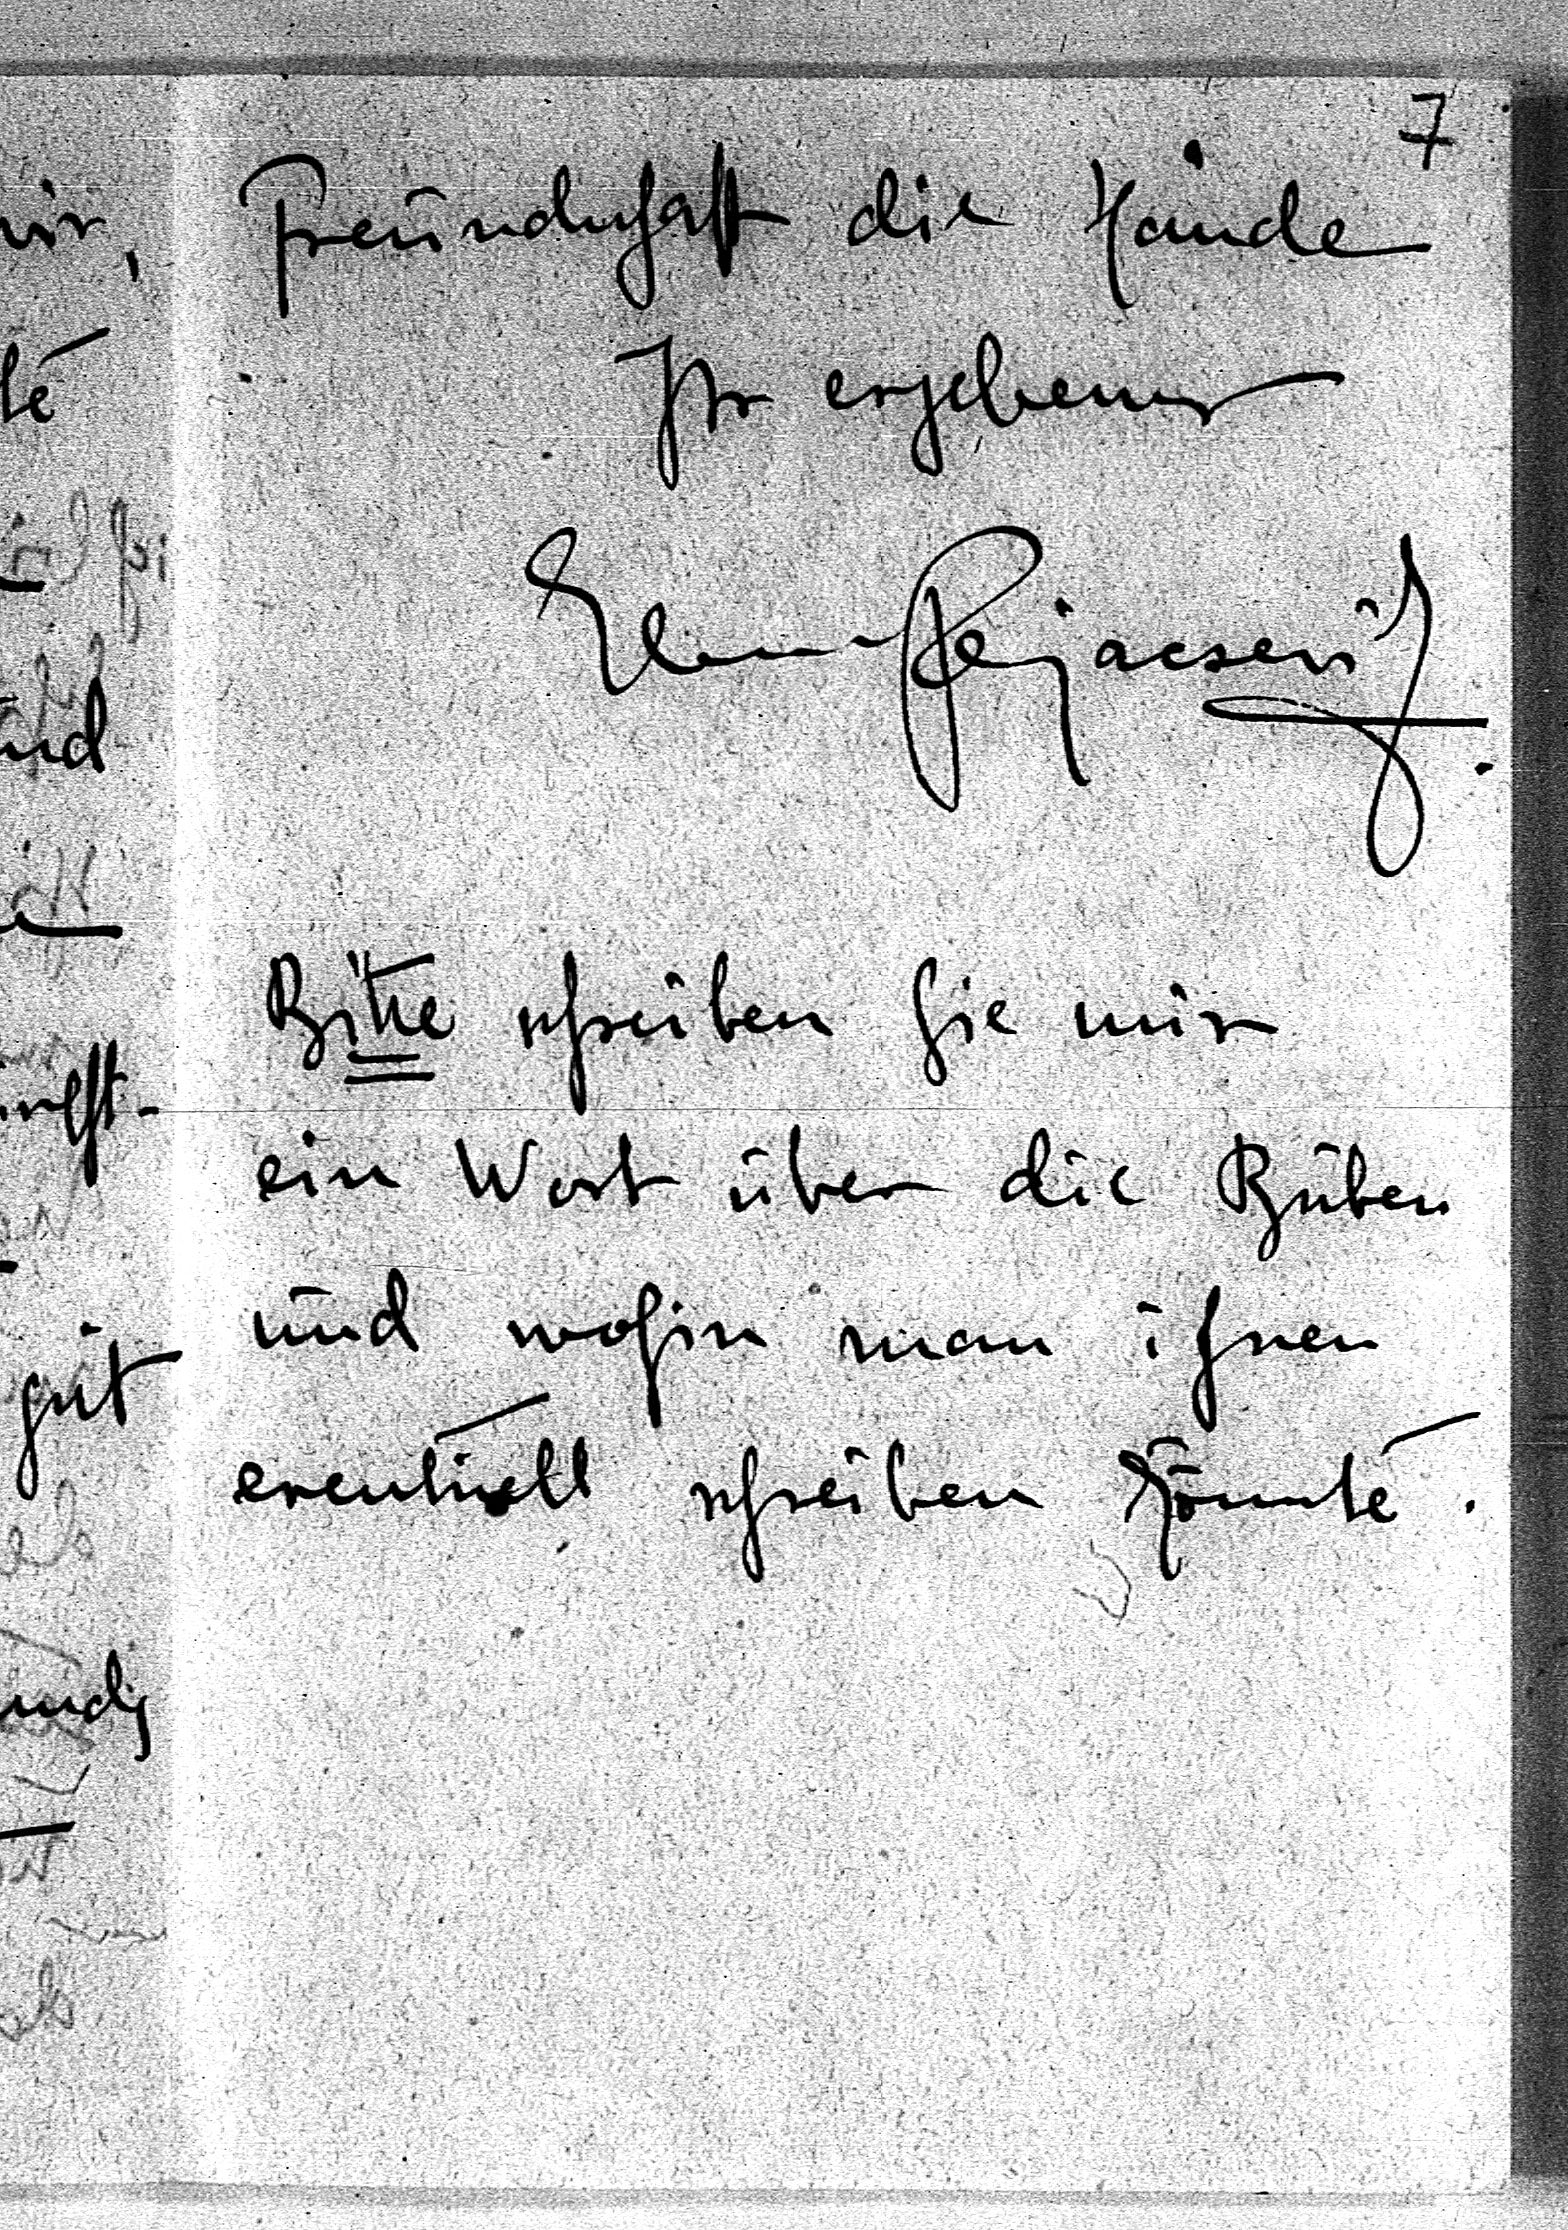 7
Freundschaft die Hände
Ihr ergebener
Elemer Pejacsevich
Bitte schreiben Sie mir
ein Wort über die Buben
und wohin man ihnen
eventuell schreiben könnte.
mir,
te
und
gut